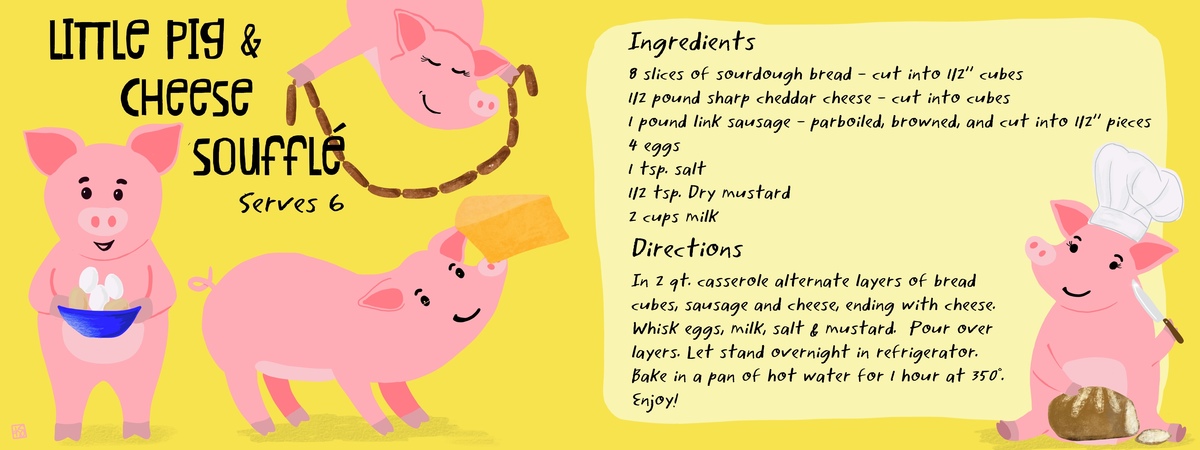 LITTLE PIG &
CHEESE
SOUFFLÉ
Serves 6
Ingredients
8 slices of sourdough bread - cut into 1/2" cubes
1/2 pound sharp cheddar cheese - cut into cubes
1 pound link sausage - parboiled, browned, and cut into 1/2" pieces
4 eggs
1 tsp. salt
1/2 tsp. Dry mustard
2 cups milk
Directions
In 2 qt. casserole alternate layers of bread
cubes, sausage and cheese, ending with cheese.
Whisk eggs, milk, salt & mustard. Pour over
layers. Let stand overnight in refrigerator.
Bake in a pan of hot water for 1 hour at 350°.
Enjoy!